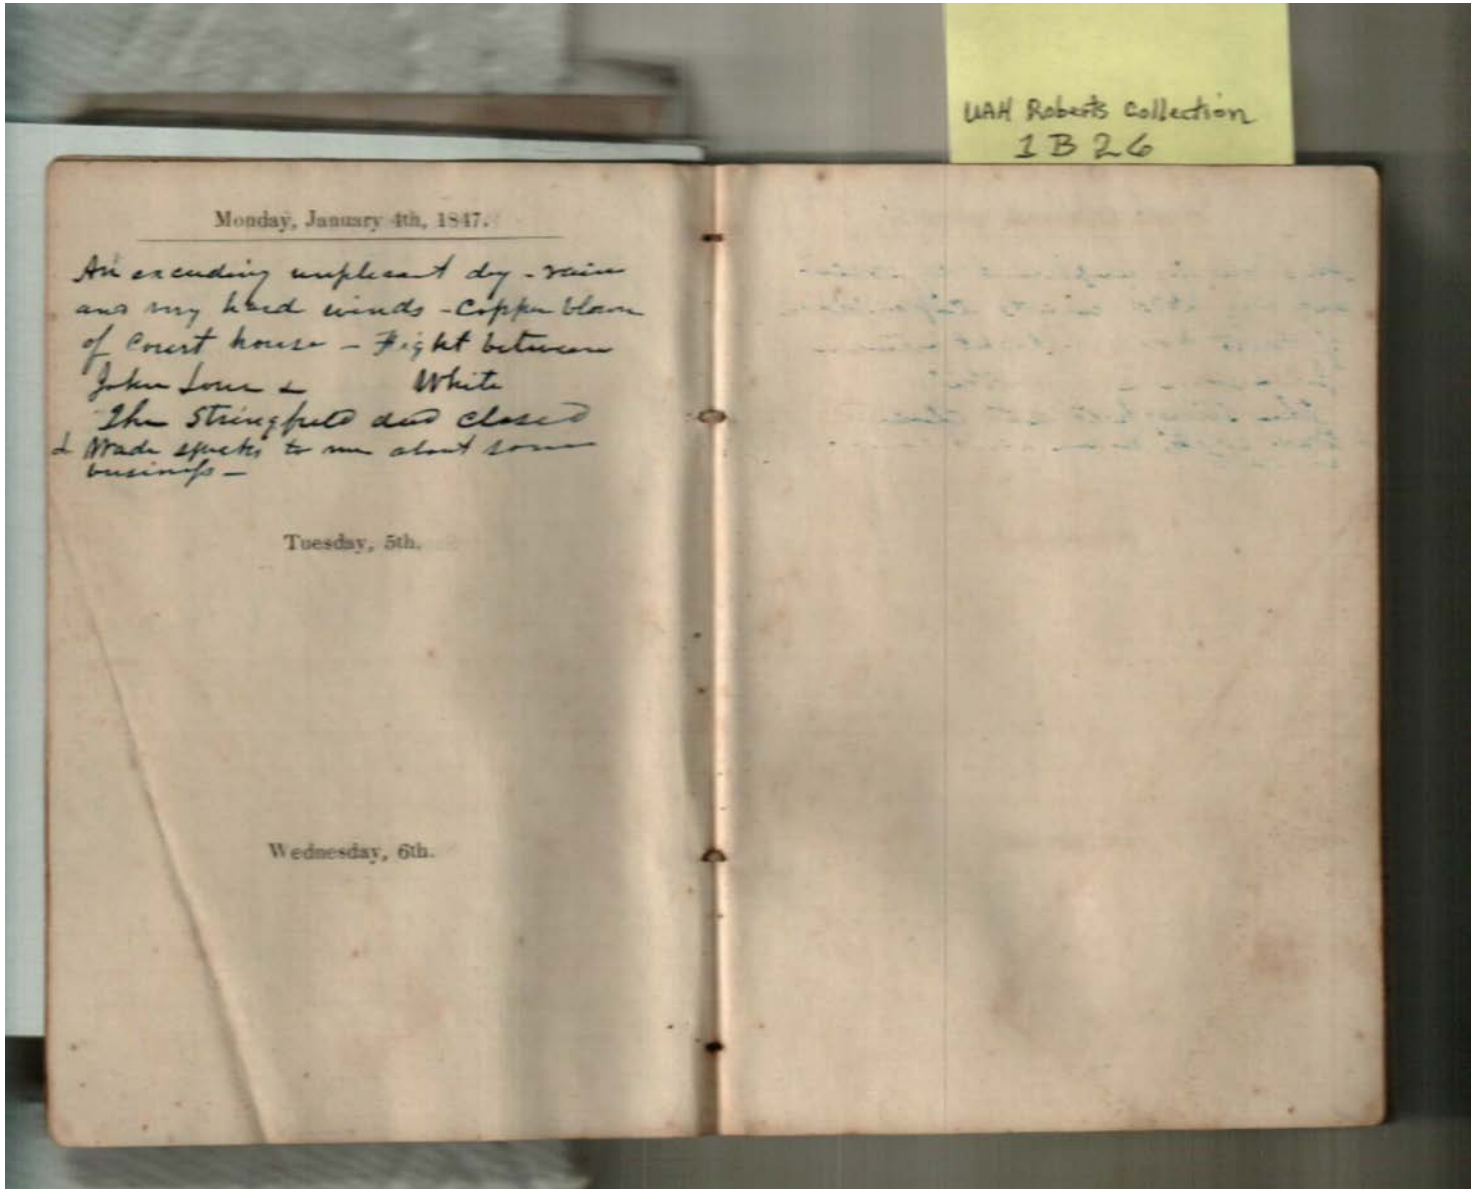 UAH Roberts Collection
1B26
Monday, January 4th, 1847.
An exceeding unplesant day - rain
and very hard winds - Copper blown
of Court house - Fight between
John & White
The Stringfield deed closed
& Wade speaks to me about some
business -
Tuesday, 5th.
Wednesday, 6th.